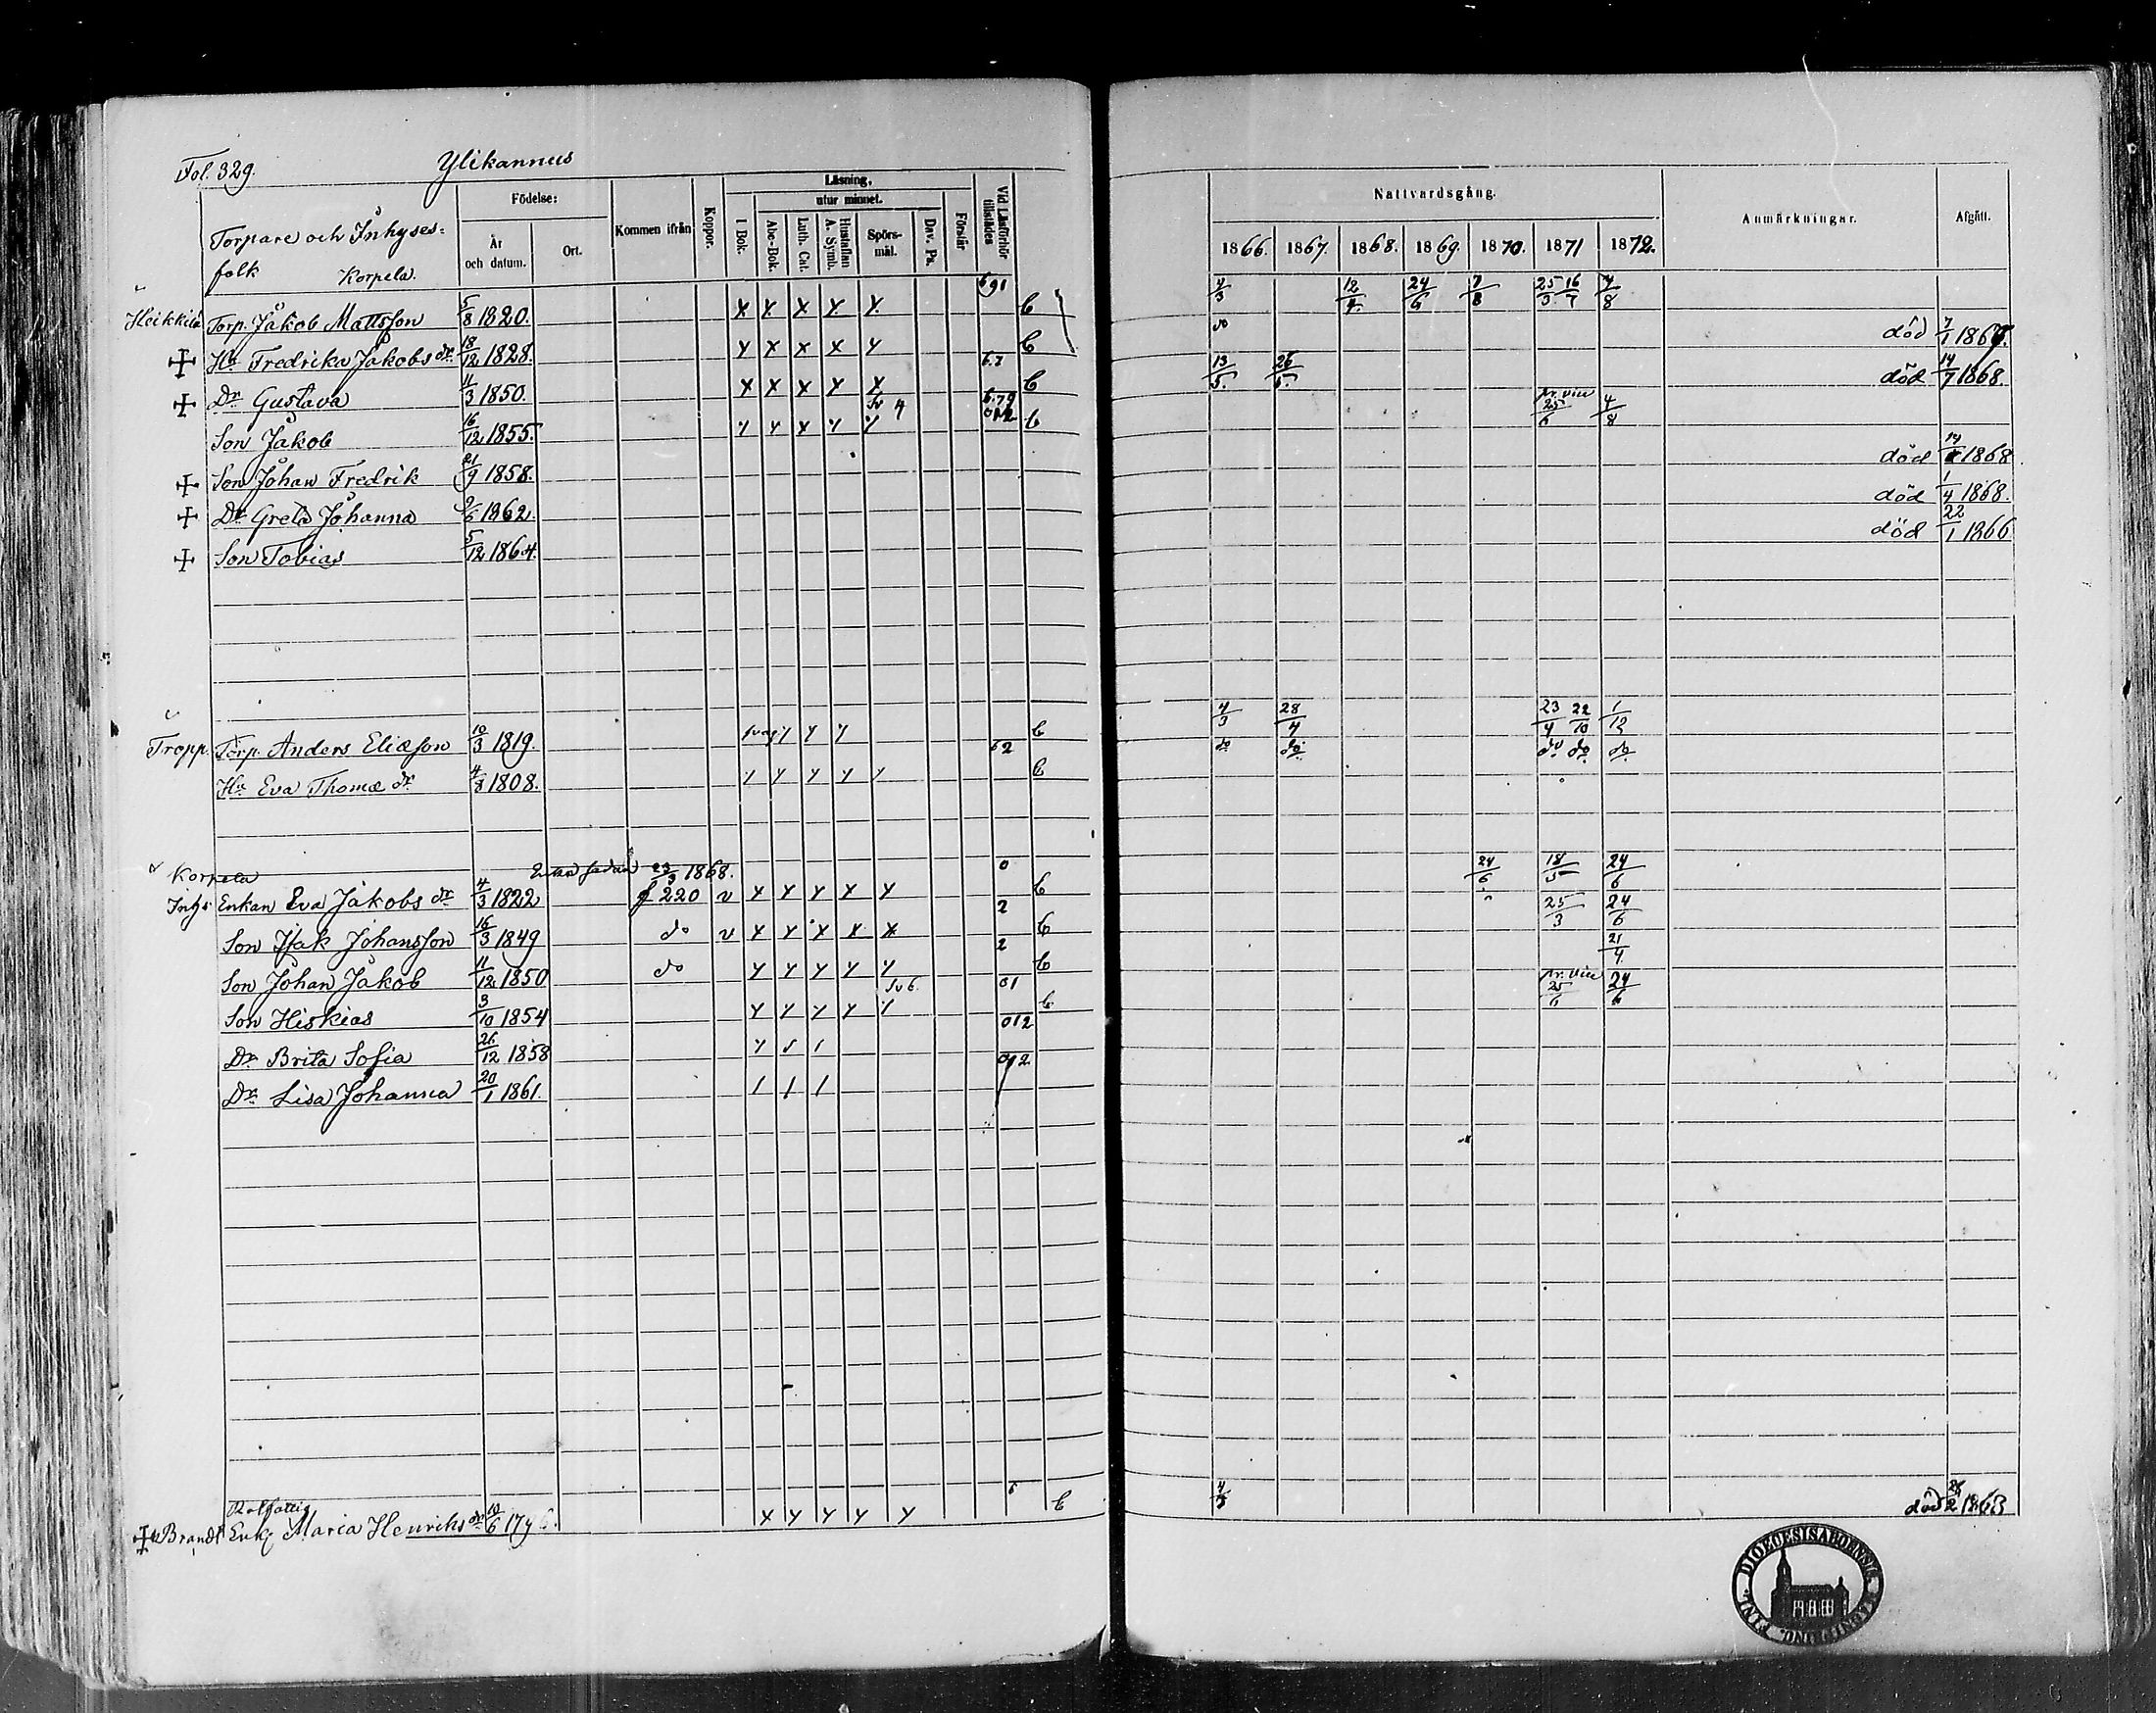 Fol. 329. Ylikannus
Torpare och Inhyses=
folk Korpela.
Födelse:
År och datum.
Ort.
Kommen ifrån
Koppor.
Läsning,
utur minnet.
I Bok.
Abc-Bok.
Luth. Cat.
Hustaflan A. Symb.
Spörs-mål.
Dav. Ps.
Förstår
Vid Läsförhör tillstädes
Nattvardsgång.
1866. 1867. 1868. 1869. 1870. 1871 1872.
Anmärkningar.
Afgått.
Heikkilä Torp. Jakob Mattsson 5/8 1820. x x x x x. 691 C 4/3 12/4. 24/6 7/8 25/3 16/7 4/8
+ Hu Fredrika Jakobs dr 18/12 1828. y x x x y C do död 7/1 1868.
+ Dr Gustava 11/3 1850. x x x x x 6.7 C 13/5. 26/5. död 14/7 1868.
Son Jakob 16/12 1855. y y x y y 6.79 012 C 25/6 4/8
+ Son Johan Fredrik 21/9 1858. död 14/ 1868
+ Dr Greta Johanna 2/6 1862. död 1/4 1868.
+ Son Tobias 5/12 1864. död 22/1 1866
Tropp. Torp. Anders Eliæson 10/3 1819. svag y y y C 4/3 28/4 23/4 22/10 1/12
Hu Eva Thomæ dr 4/8 1808. y y y y y 62 C do do. do do do
Korpela Enka sedan 23/3 1868.
Inhys Enkan Eva Jakobs dr 4/3 1822 f 220 v x y y x y 0 C 24/6 18/5 24/6
Son Isak Johansson 16/3 1849 do v x y x x x 2 C 25/3 24/6
Son Johan Jakob 11/12 1850 do y y y y y 2 C 21/4.
Son Hiskias 3/10 1854 y y y y y 01 C 25/6 24/6
Dr Brita Sofia 26/12 1858 012
Dr Lisa Johanna 20/1 1861. 012
Rotfattig
+ Brandt Enk. Maria Henriks dr 10/6 179 x y y y y 6 C 4/3 död 1868
DIOECESIS ABOENSIS